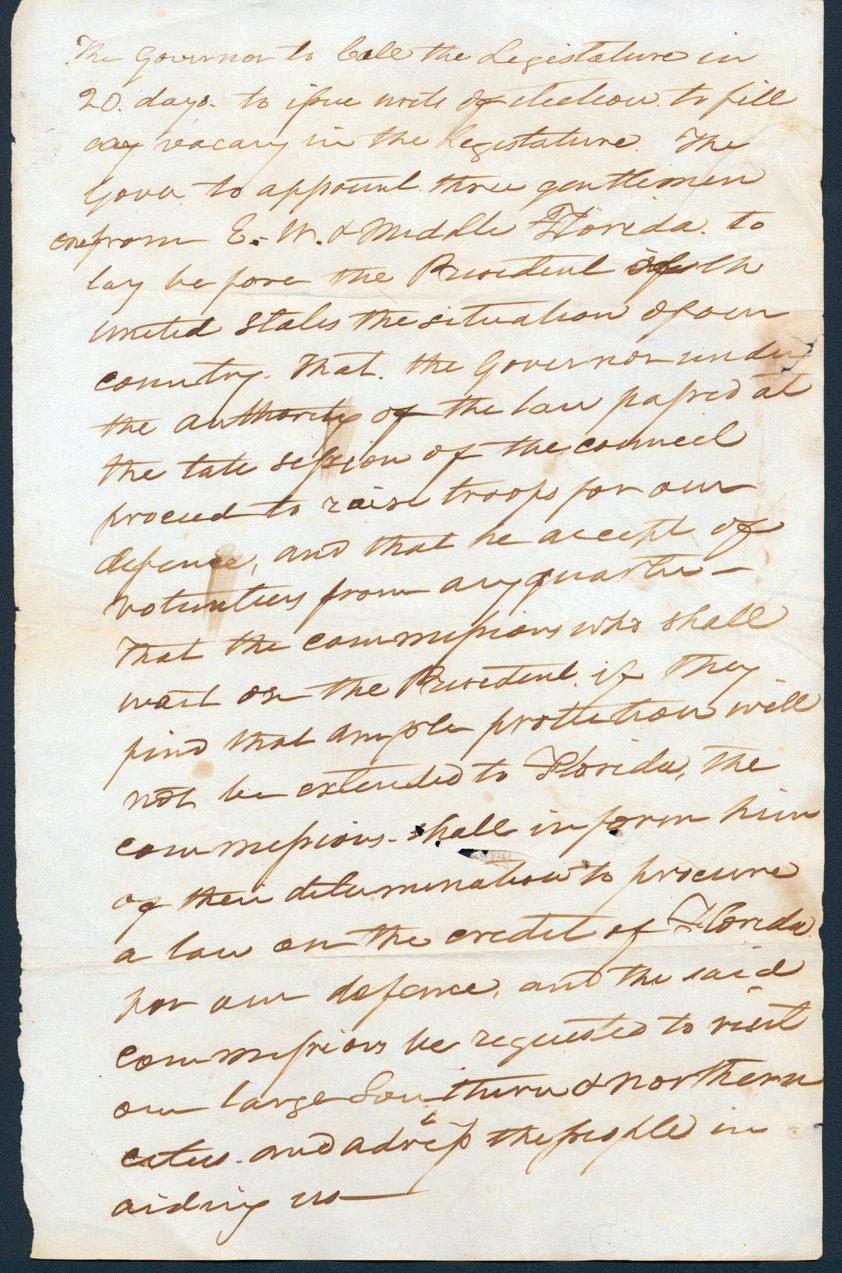 The Governor to Call the Legistature in
20. days. to issue writs of election to fill
any vacancy in the Legistature The
Govr. to appoint three gentlemen
one from E. W. & Middle Florida. to
lay before the President of the
united States the situation of our
country. That. the Governor under
the authority of the law passed at
the late session of the council
proceed to raise troops for our
defence, and that he accept of
volunteers from any quarter —
That the commissions who shall
wait on the President if they
find that ample protection will
not be extended to Florida, the
commissions shall inform him
of their determination to procure
a law on the credit of Florida
for our defence, and the said
commissions be requested to visit
our large Southern & northern
cities. and adress the people in
aiding us —